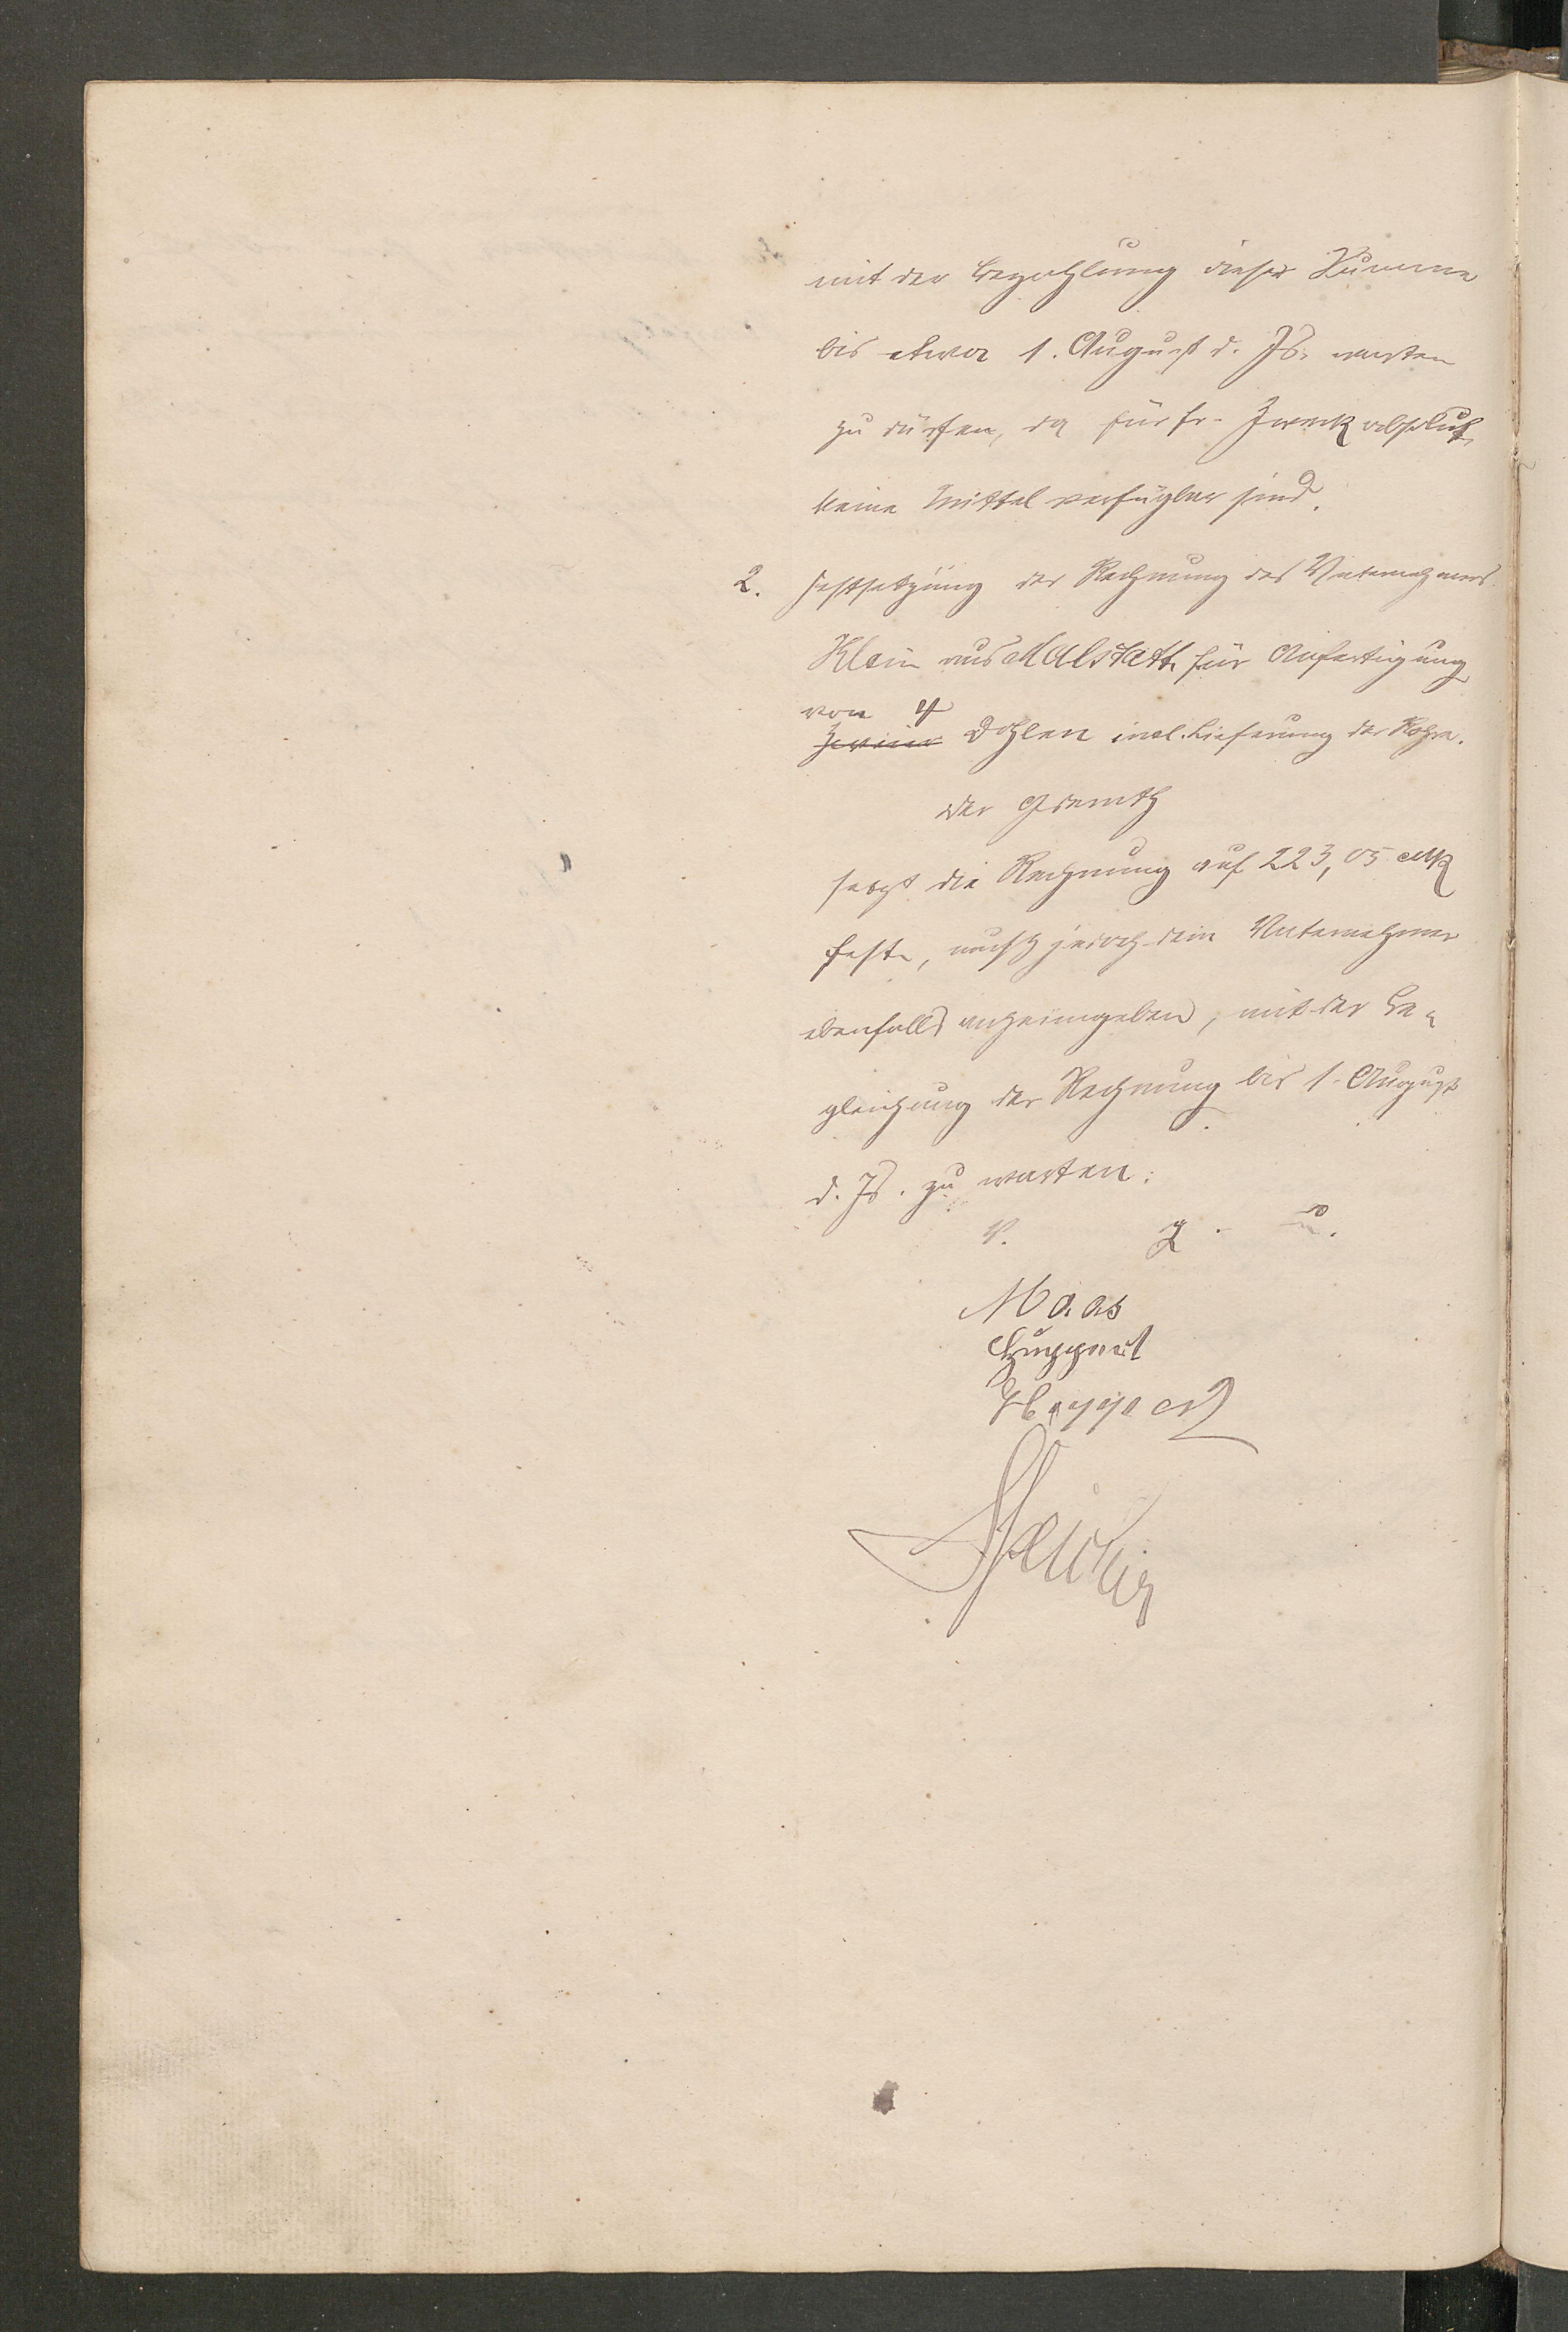 mit der Bezahlung dieser Summe
bis etwa 1. August d. Js. warten
zu dürfen, da für fr. Zweck absolut
keine Mittel verfügbar sind.
2. Festsetzung der Rechnung des Unternehmers
Klein aus Malstatt für Anfertigung
von 4
Dohlen incl. Lieferung der Rohre.
Der Gdrath
setzt die Rechnung auf 223,05 Mk
fest, muß jedoch dem Unternehmer
ebenfalls anheimgeben, mit der Be-
gleichung der Rechnung bis 1. August
d. Js. zu warten.
V. g. u.
Maas
Huppert